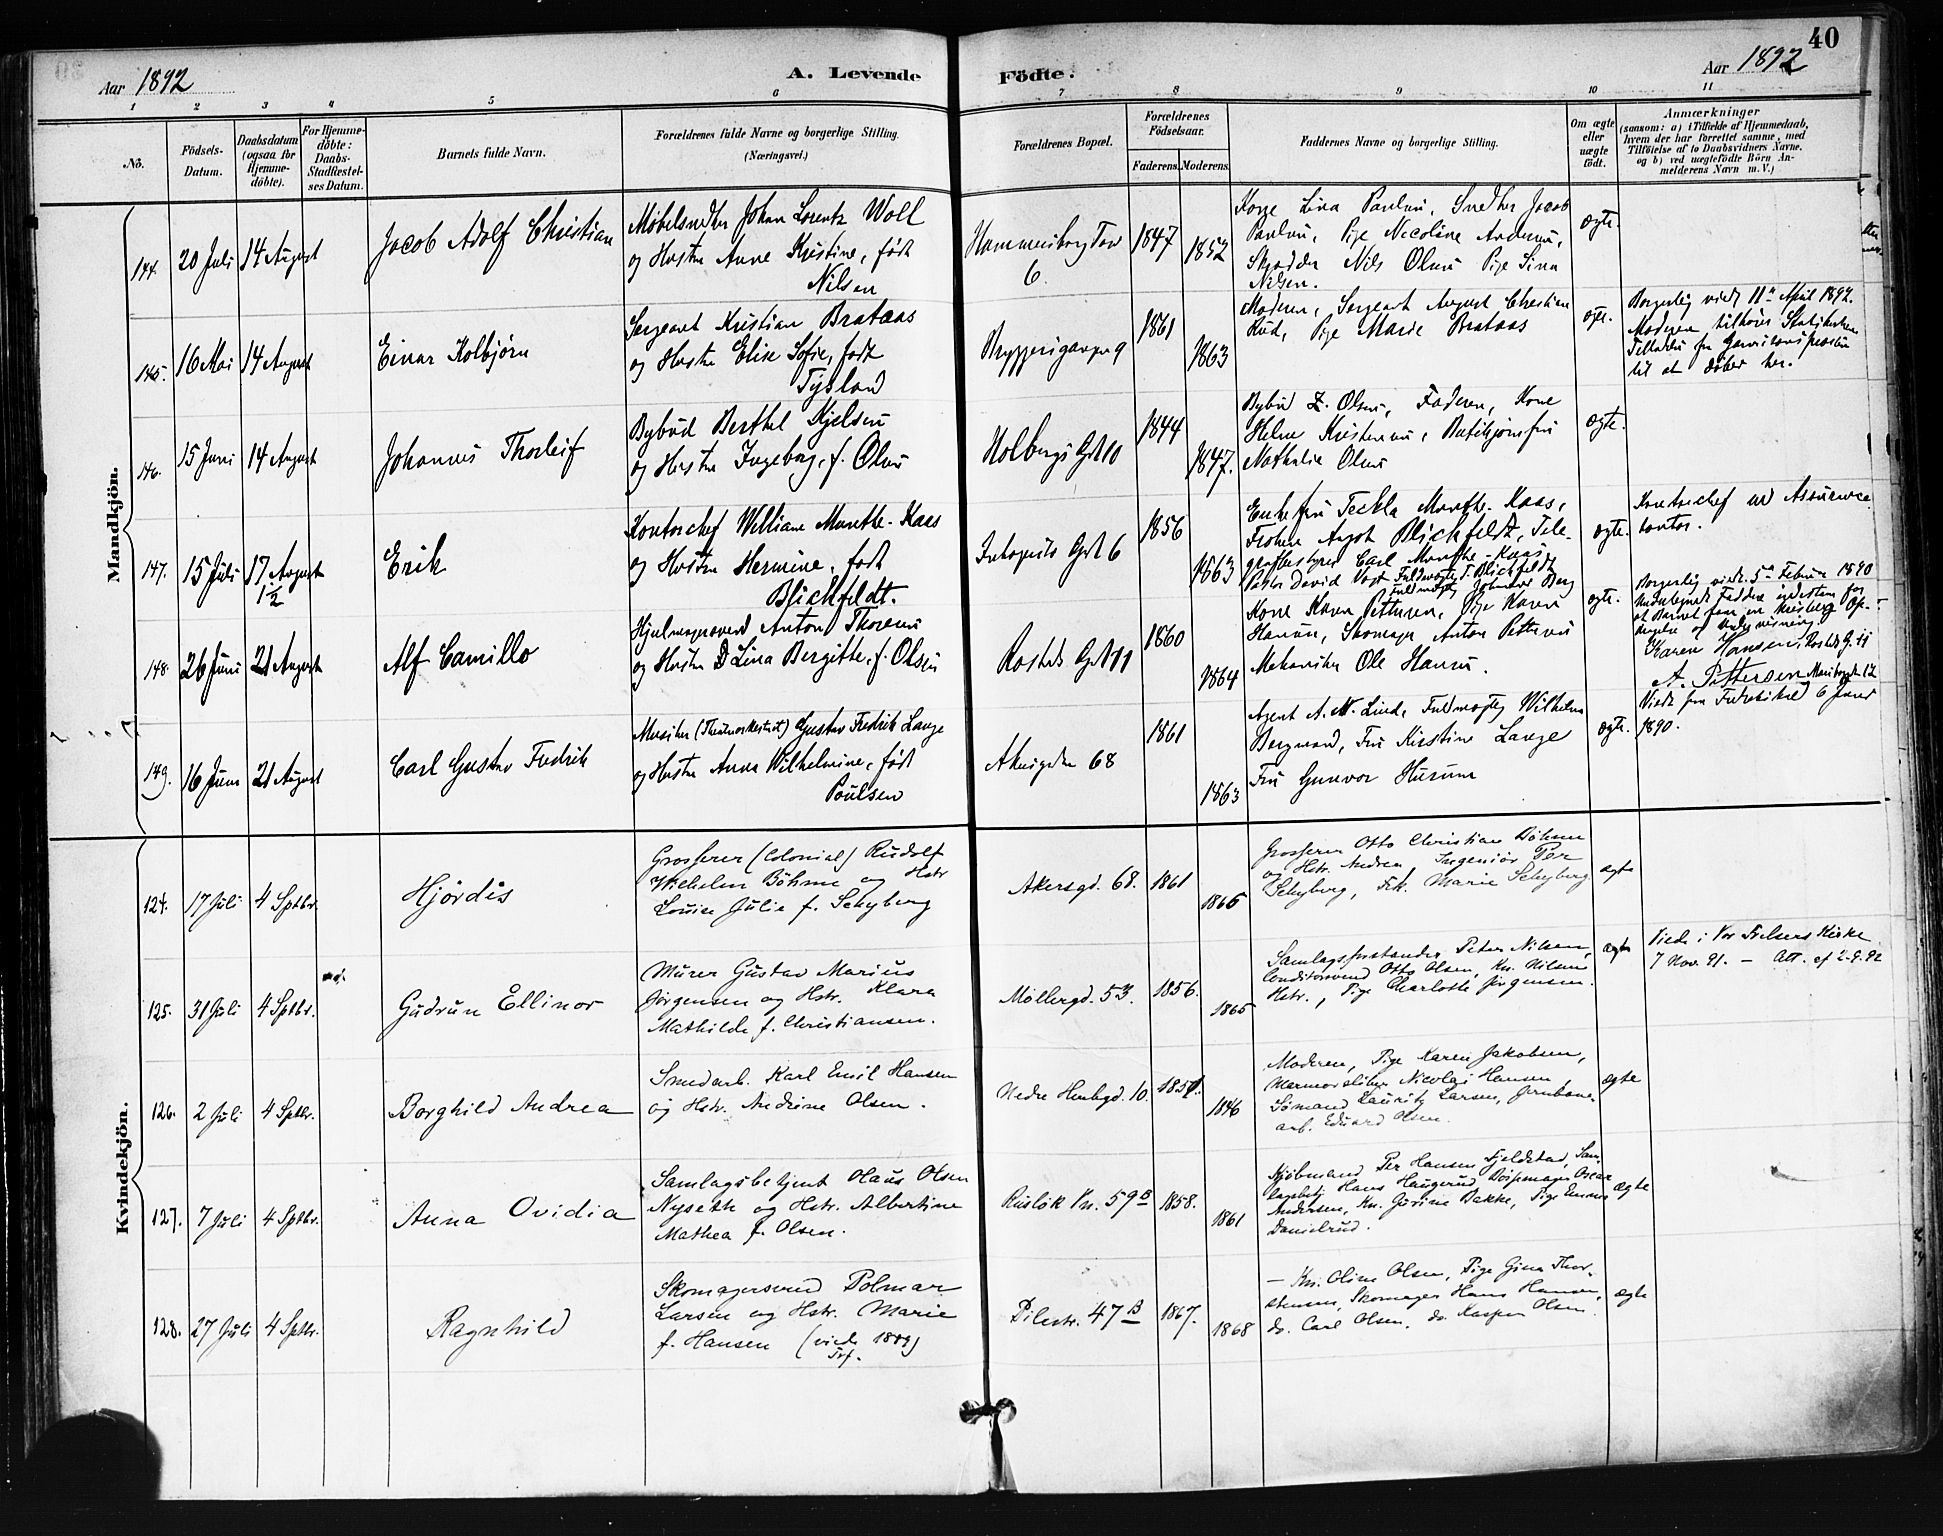 40
Aar 1892
A. Levende Födte.
Aar 1892
1 2 3 4 5 6 7 8 9 10 11
No.
Födsels-Datum.
Daabsdatum (ogsaa for Hjemme-döbte).
For Hjemme-döbte: Daabs-Stadfæstel-ses Datum.
Barnets fulde Navn.
Forældrenes fulde Navne og borgerlige Stilling.
(Næringsvei.)
Forældrenes Bopæl.
Forældrenes Födselsaar.
Faderens. Moderens.
Faddernes Navne og borgerlige Stilling.
Om ægte eller uægte födt.
Anmærkninger
(saasom: a) i Tilfælde af Hjemmedaab,
hvem der har forrettet samme, med
Tilföielse af to Daabsvidners Navne.
og b) ved uægtefödte Börn An-
melderens Navn m. V.)
Mandkjön.
144. 20 Juli 14 August
Jacob Adolf Christian
Møbelsnedker Johan Lorentz Woll
og Hustru Anne Kristine, født
Nilsen
Hammersborg Torv
6.
1847 1852
Kone Lina Paulsen, Snedker Jacob
Paulsen, Pige Nicoline Andersen,
Skrædder Nils Olsen Pige Lina
Nilsen.
ægte.
145. 16 Mai 14 August
Einar Kolbjørn
Sergeant Kristian Brataas
og Hustru Elise Sofie, født
Tysland
Bryggerigangen 9
1861 1863
Moderen, Sergeant August Christian
Rud, Pige Marie Brataas
ægte.
Borgerlig viede 11te April 1892.
Moderen tilhører Statskirken
til at døbes her.
146. 15 Juni 14 August
Johannes Thorleif
Bybud Berthel Kjelsen
og Hustru Ingeborg, f. Olsen
Holbergs Gd 10
1844 1847.
Bybud Z. Olsen, Faderen, Kone
Helene Kristensen, Butikjomfru
Nathalie Olsen
ægte.
147. 15 Juli 17 August
1½
Erik
Kontorchef William Munthe-Kaas
og Hustru Hermine, født
Blichfeldt.
Gd 6
1856 1863
Enkefru Teckla Munthe-Kaas,
Frøken Blichfeldt, Tele-
grafbestyrer Carl Munthe-Kaas
David Vogt Fuldmægtig T. Blichfeldt
Fuldmægtig Johannes Berg
ægte.
Kontorchef ved Assurance
kontor.
148. 26 Juni 21 August
Alf Camillo
Anton Thoresen
og Hustru Lina Bergitte, f. Olsen
Rosteds Gd 11
1860 1864
Kone Karen Pettersen, Pige Karen
Hansen, Skomager Anton Pettersen
Mekaniker Ole Hansen.
ægte.
Borgerlig viede 5te Februar 1890
Undertegnede Faddere indestaar for
at Barnet faar en kristelig Op-
dragelse og Undervisning.
Karen Hansen, Rosteds G. 11
A. Pettersen
149. 16 Juni 21 August
Carl Gustav Fredrik
Musiker (Theaterorkestret) Gustav Fredrik Lange
og Hustru Anna Wilhelmine, født
Poulsen
Akersgaden 68
1861 1863
Agent A. M. Lind, Fuldmægtig Wilhelm
Bergwand, Fru Kirstine Lange
Fru Gunvor Husum
ægte.
Viede fra Frikirke 6 Januar
1890.
Kvindekjön.
124. 17 Juli 4 Sptbr.
Hjördis
Grosserer (Colonial) Rudolf
Wilhelm Böhme og Hstr
Louise Julie f. Schyberg
Akersgd. 68. 1861 1865
Grosserer Otto Christian Böhme
og Hstr. Andrea, Ingeniør Per
Schyberg, Frk. Marie Schyberg
ægte
125. 31 Juli 4 Sptbr.
Gudrun Ellinor
Murer Gustav Marius
Jørgensen og Hstr. Klara
Mathilde f. Christiansen.
Møllergd. 53. 1856. 1865
Samlagsforstander Peter Nilsen,
Conditorsvend Otto Olsen, Kn. Nilsine
Hstr., Pige Charlotte Jørgensen.
ægte
Viede i Vor Frelsers Kirke
7 Nov. 91. – Att. af 2-9-92
126. 2 Juli 4 Sptbr.
Borghild Andrea
Smedarb. Karl Emil Hansen
og Hstr. Andrine Olsen.
Nedre 10. 1851. 1846
Moderen, Pige Karen Jakobsen,
Marmorsliber Nicolai Hansen,
Sømand Lauritz Larsen, Jernbane-
arb. Eduard Olsen.
ægte
127. 7 Juli 4 Sptbr.
Anna Ovidia
Samlagsbetjent Hans Olsen
Nyseth og Hstr. Albertine
Mathea f. Olsen.
Ruslök Vn. 59 B 1858. 1861
Kjöbmand Per Hansen Fjeldstad, Sam-
lagsbetj. Hans Haugerud Börsemager Oscar
Andersen, Kn. Gurine Bakke, Pige Emma
Danielrud.
ægte
128. 27 Juli 4 Sptbr.
Ragnhild
Skomagersvend Polmar
Larsen og Hstr. Marie
f. Hansen (viede 1889)
Trf.
Pilestr. 47 B 1867. 1868
– Kn. Oline Olsen, Pige Gina Thor-
stensen, Skomager Hans Hansen,
do. Carl Olsen, do. Kasper Olsen.
ægte